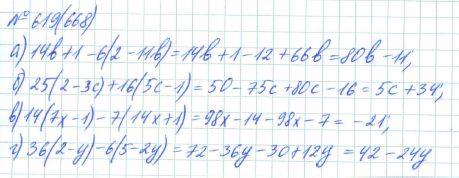 № 619(668)
а) 14b+1-6(2-11b)=14b+1-12+66b=80b-11;
б) 25(2-3c)+16(5c-1)=50-75c+80c-16=5c+34;
в) 14(7x-1)-7(14x+1)=98x-14-98x-7=-21;
г) 36(2-y)-6(5-2y)=72-36y-30+12y=42-24y